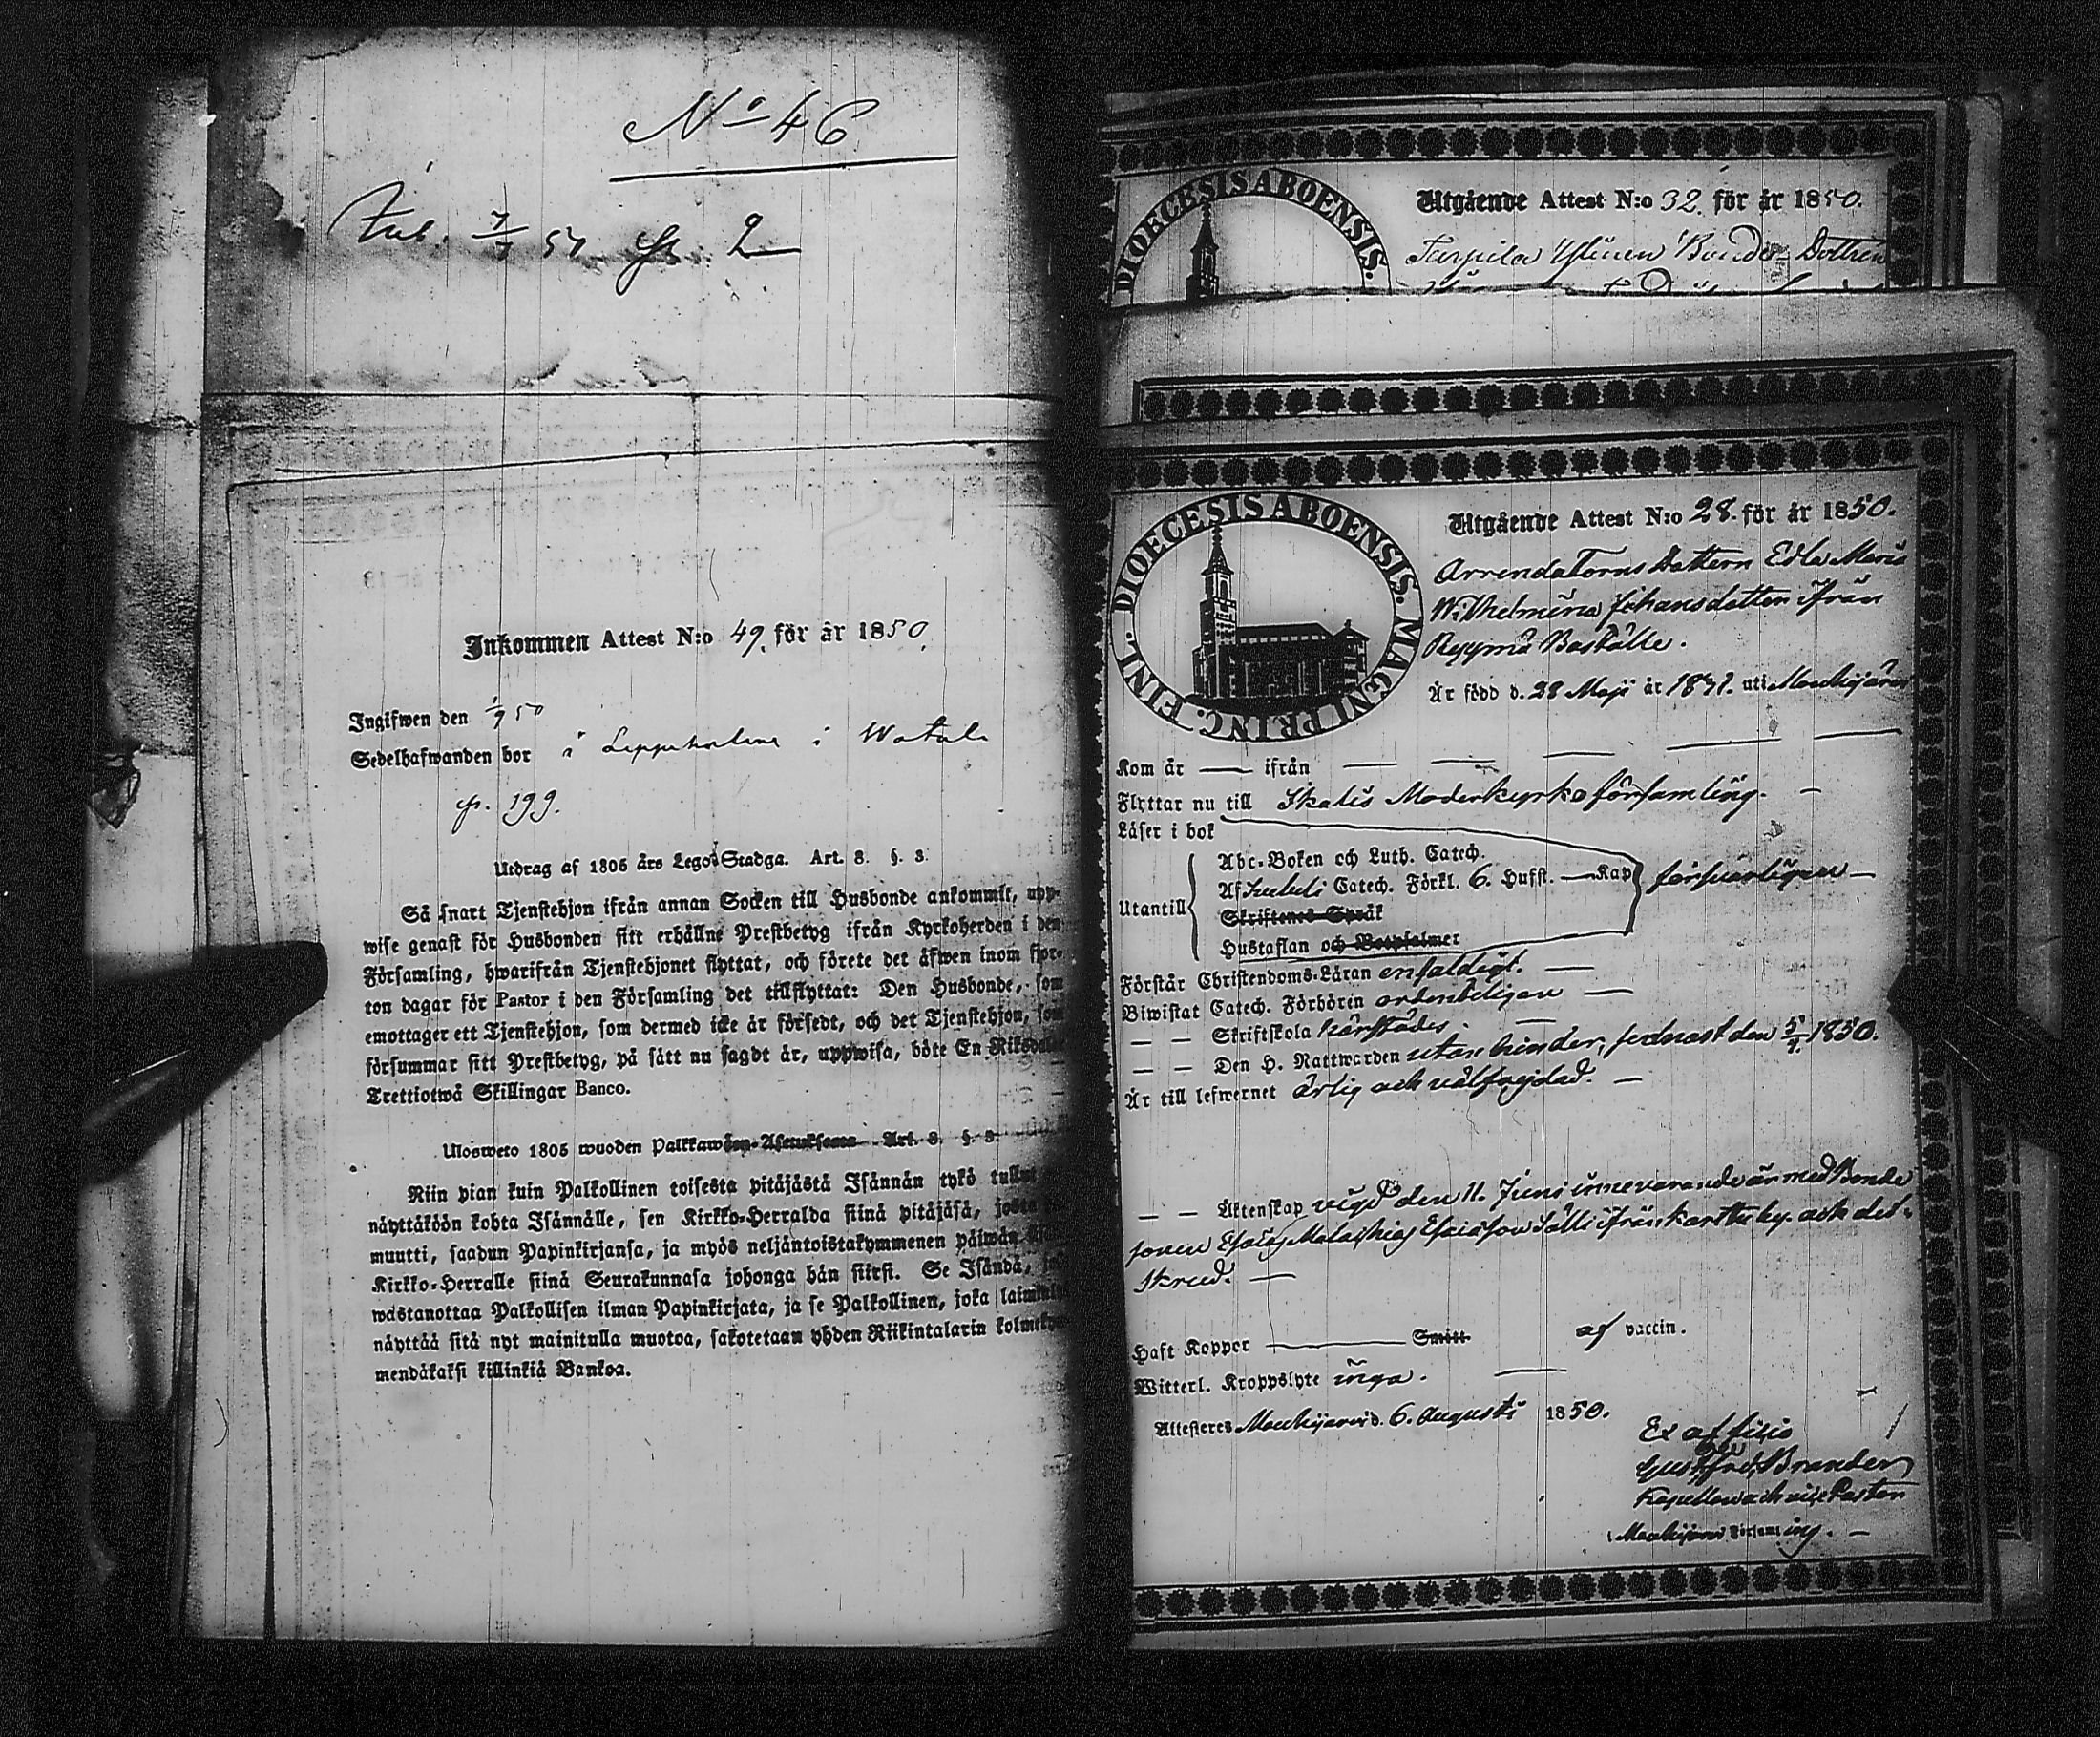 No 46
Ink. 7/7 51 p. 2
Inkommen Attest N:o 49. för år 1850.
Ingifwen den 1/9 50
Sedelhafwanden bor i i Watula
p. 199.
Utdrag af 1805 års Lego-Stadga. Art. 8. §. 3.
Så snart Tjenstehjon ifrån annan Socken till Husbonde ankommit, upp-
wise genast för Husbonden sitt erhållne Prestbetyg ifrån Kyrkoherden i den
Församling, hwarifrån Tjenstehjonet flyttat, och förete det äfwen inom fjor-
ton dagar för Pastor i den Församling det tillflyttat: Den Husbonde, som
emottager ett Tjenstehjon, som dermed icke är försedt, och det Tjenstehjon, som
försummar sitt Prestbetyg, på sätt nu sagdt är, uppwisa, böte En Riksdaler
Trettiotwå Skillingar Banco.
Ulosweto 1805 wuoden Palkkawäen-Asetuksesta Art. 8. §. 3.
Niin pian kuin Palkollinen toisesta pitäjästä Isännän tykö tullut
näyttäköön kohta Isännälle, sen Kirkko-Herralda siinä pitäjäsä, josta
muutti, saadun Papinkirjansa, ja myös neljäntoistakymmenen päiwän
Kirkko-Herralle siinä Seurakunnasa johonga hän siirsi. Se Isändä,
wastanottaa Palkollisen ilman Papinkirjata, ja se Palkollinen, joka
näyttää sitä nyt mainitulla muotoa, sakotetaan yhden Riikintalarin
mendäkaksi killinkiä Bankoa.
DIOECESIS ABOENSIS.
Utgående Attest N:o 32. för år 1850.
Bonde Dottren
DIOECESIS ABOENSIS. MAGNI PRINC. FINL.
Utgående Attest N:o 28. för år 1850.
Arrendatorns Dottern Edla Maria
Wilhelmina Johansdotter ifrån
Boställe.
Är född d. 28 Maji år uti Mouhijärvi
Kom år — ifrån — — — — —
Flyttar nu till Ikalis Moderkyrko församling. —
Läser i bok
Utantill
Abc-Boken och Luth. Catech.
Af Catech. Förkl. 6. Hufst. — Kap försvarligen —
Skriftenes Språk
Hustaflan och Botpsalmer
Förstår Christendoms-Läran enfaldigt. —
Biwistat Catech. Förhören ordenteligen —
— — Skriftskola härstädes. —
— — Den H. Nattwarden utan hinder, sednast den 1850.
Är till lefwernet ärlig och välfrejdad. —
— — Äktenskap vigd den 11. Juni innevarande år med Bonde
sonen Esaias Malachias Esaiasson ifrån by. och det
Skrud. —
Haft Koppor — Smitt af vaccin.
Witterl. Kroppslyte inga. —
Attesteres Mouhijärvi d. 6. Augusti 1850.
Ex officio
Gust. Fred. Brander
Kapellan och vice Pastor
i Mouhijärvi Församling. —